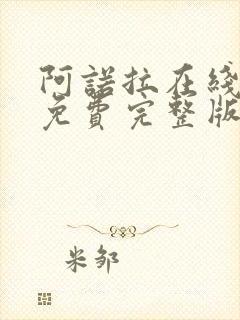 阿諾拉在綫
免費完整版
米邹